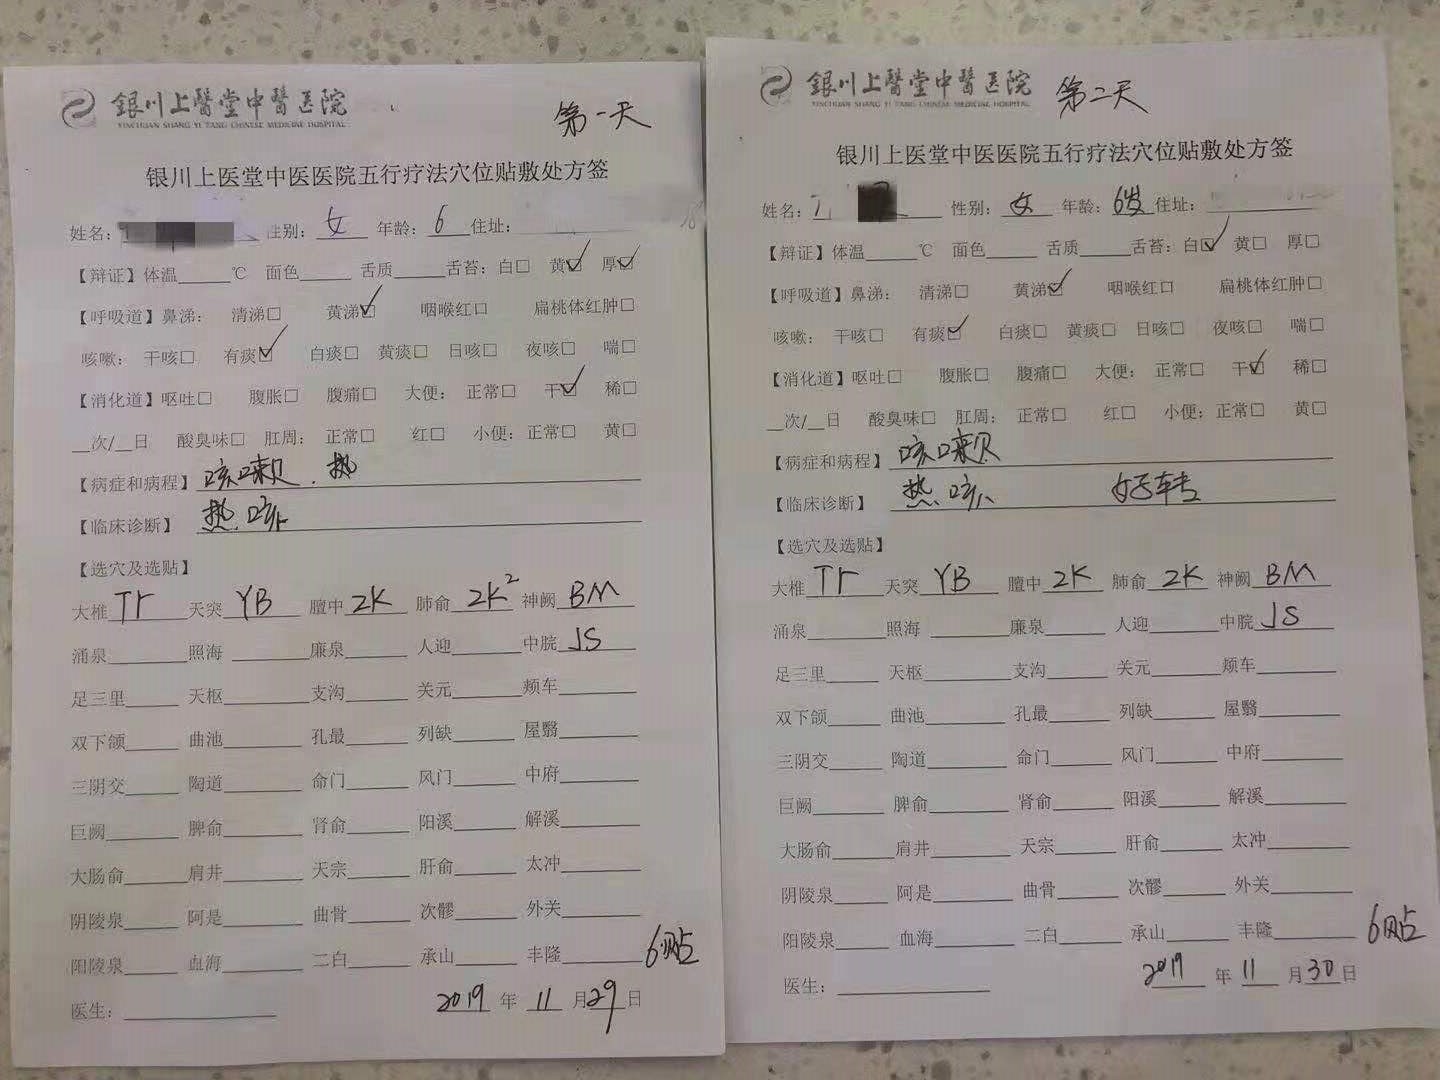 银川上醫堂中醫医院
YINCHUAN SHANG YI TANG CHINESE MEDICINE HOSPITAL
第一天
银川上医堂中医医院五行疗法穴位贴敷处方签
姓名： 性别：女 年龄：6 住址：
【辩证】体温____℃ 面色____ 舌质____舌苔：白□ 黄☑ 厚☑
【呼吸道】鼻涕： 清涕□ 黄涕☑ 咽喉红□ 扁桃体红肿□
咳嗽： 干咳□ 有痰☑ 白痰□ 黄痰□ 日咳□ 夜咳□ 喘□
【消化道】呕吐□ 腹胀□ 腹痛□ 大便： 正常□ 干☑ 稀□
__次/__日 酸臭味□ 肛周： 正常□ 红□ 小便：正常□ 黄□
【病症和病程】咳嗽.热
【临床诊断】 热咳
【选穴及选贴】
大椎Tr 天突YB 膻中2K 肺俞2K² 神阙BM
涌泉____ 照海____ 廉泉____ 人迎____ 中脘JS
足三里____ 天枢____ 支沟____ 关元____ 颊车____
双下颌____ 曲池____ 孔最____ 列缺____ 屋翳____
三阴交____ 陶道____ 命门____ 风门____ 中府____
巨阙____ 脾俞____ 肾俞____ 阳溪____ 解溪____
大肠俞____ 肩井____ 天宗____ 肝俞____ 太冲____
阴陵泉____ 阿是____ 曲骨____ 次髎____ 外关____
阳陵泉____ 血海____ 二白____ 承山____ 丰隆____ 6贴
医生：____ 2019年11月29日
银川上醫堂中醫医院
YINCHUAN SHANG YI TANG CHINESE MEDICINE HOSPITAL
第二天
银川上医堂中医医院五行疗法穴位贴敷处方签
姓名： 性别：女 年龄：6岁 住址：
【辩证】体温____℃ 面色____ 舌质____ 舌苔：白☑ 黄□ 厚□
【呼吸道】鼻涕： 清涕□ 黄涕☑ 咽喉红□ 扁桃体红肿□
咳嗽： 干咳□ 有痰☑ 白痰□ 黄痰□ 日咳□ 夜咳□ 喘□
【消化道】呕吐□ 腹胀□ 腹痛□ 大便： 正常□ 干☑ 稀□
__次/__日 酸臭味□ 肛周： 正常□ 红□ 小便：正常□ 黄□
【病症和病程】咳嗽
【临床诊断】 热咳 好转
【选穴及选贴】
大椎Tr 天突YB 膻中2K 肺俞2K 神阙BM
涌泉____ 照海____ 廉泉____ 人迎____ 中脘JS
足三里____ 天枢____ 支沟____ 关元____ 颊车____
双下颌____ 曲池____ 孔最____ 列缺____ 屋翳____
三阴交____ 陶道____ 命门____ 风门____ 中府____
巨阙____ 脾俞____ 肾俞____ 阳溪____ 解溪____
大肠俞____ 肩井____ 天宗____ 肝俞____ 太冲____
阴陵泉____ 阿是____ 曲骨____ 次髎____ 外关____
阳陵泉____ 血海____ 二白____ 承山____ 丰隆____ 6贴
医生：____ 2019年11月30日